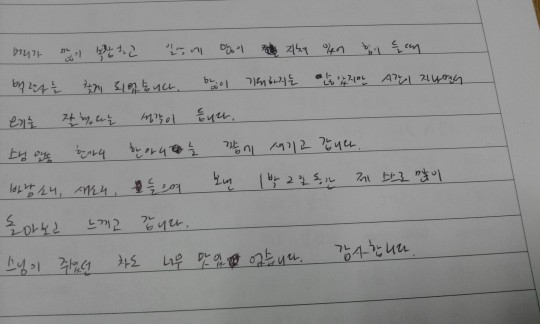 머리가 많이 복잡하고 일상에 많이 지쳐 있어 힘이 들때
백련사를 찾게 되었습니다. 많이 기대하지는 않았지만 시간이 지나면서
오기를 잘했다는 생각이 듭니다.
스님 말씀 한마디 한마디를 깊게 새기고 갑니다.
바람소리, 새소리, 들으며 보낸 1박 2일동안 제 스스로 많이
돌아보고 느끼고 갑니다.
스님이 주셨던 차도 너무 맛있었습니다. 감사합니다.